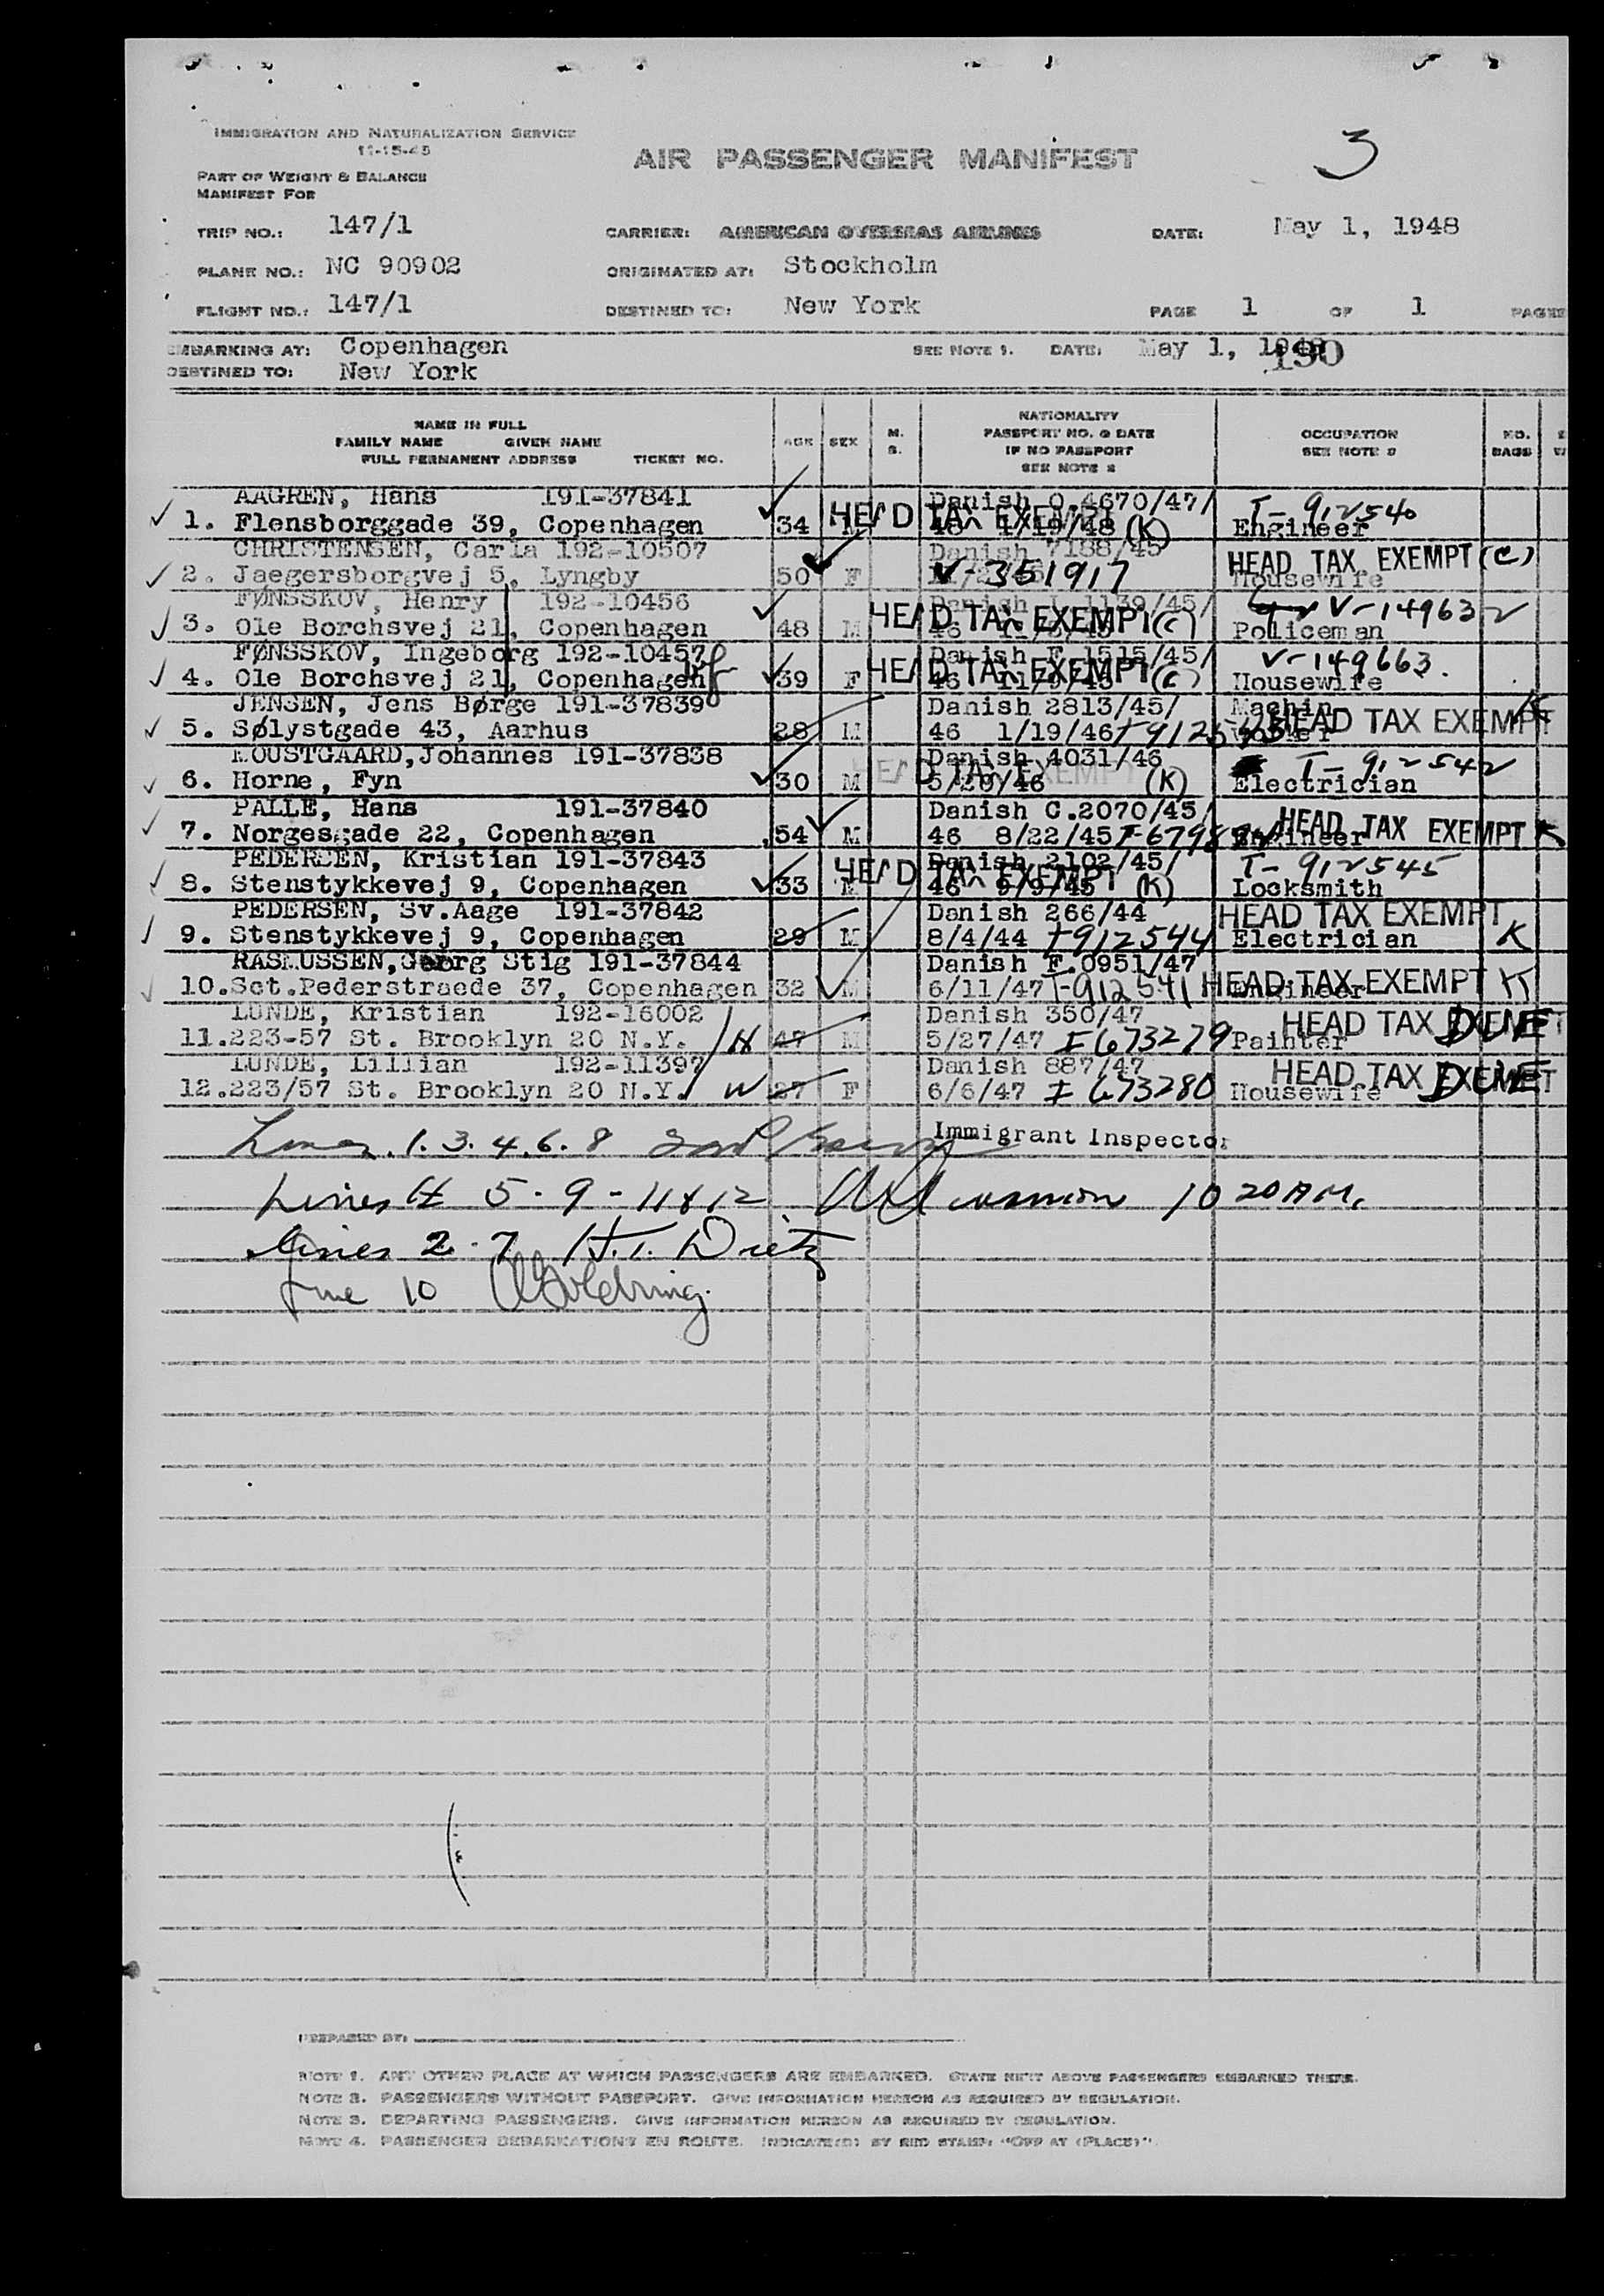 IMMIGRATION AND NATURALIZATION SERVICE
11-15-45
AIR PASSENGER MANIFEST
3
PART OF WEIGHT & BALANCE
MANIFEST FOR
TRIP NO.: 147/1 CARRIER: AMERICAN OVERSEAS AIRLINES DATE: May 1, 1948
PLANE NO.: NC 90902 ORIGINATED AT: Stockholm
FLIGHT NO.: 147/1 DESTINED TO: New York PAGE 1 OF 1 PAGES
EMBARKING AT: Copenhagen SEE NOTE 1. DATE: May 1, 1948 190
DESTINED TO: New York
NAME IN FULL
FAMILY NAME GIVEN NAME
FULL PERMANENT ADDRESS TICKET NO.
AGE SEX M. S.
NATIONALITY
PASSPORT NO. & DATE
IF NO PASSPORT
SEE NOTE 2
OCCUPATION
SEE NOTE 2
NO. BAGS
AAGREN, Hans 191-37841 Danish O 4670/47/ T-912540
1. Flensborggade 39, Copenhagen 34 M HEAD TAX EXEMPT 48 1/19/48 (K) Engineer
CHRISTENSEN, Carla 192-10507 Danish 7188/45 HEAD TAX EXEMPT (C)
2. Jaegersborgvej 5, Lyngby 50 F V-351917 Housewife
FØNSSKOV, Henry 192-10456 Danish 1139/45/ V-149632
3. Ole Borchsvej 21, Copenhagen 48 M HEAD TAX EXEMPT (C) 46 Policeman
FØNSSKOV, Ingeborg 192-10457 Danish F 1515/45/ V-149663.
4. Ole Borchsvej 21, Copenhagen 39 F HEAD TAX EXEMPT (C) 46 11/9/45 Housewife
JENSEN, Jens Børge 191-37839 Danish 2813/45/ Machin
5. Sølystgade 43, Aarhus 28 M 46 1/19/46 HEAD TAX EXEMPT K
MOUSTGAARD, Johannes 191-37838 Danish 4031/46 T-912542
6. Horne, Fyn 30 M HEAD TAX EXEMPT 5/20/46 (K) Electrician
PALLE, Hans 191-37840 Danish C.2070/45/
7. Norgesgade 22, Copenhagen 54 M 46 8/22/45 Engineer HEAD TAX EXEMPT K
PEDERSEN, Kristian 191-37843 Danish 2102/45/ T-912545
8. Stenstykkevej 9, Copenhagen 33 M HEAD TAX EXEMPT 46 9/9/45 (K) Locksmith
PEDERSEN, Sv.Aage 191-37842 Danish 266/44 HEAD TAX EXEMPT
9. Stenstykkevej 9, Copenhagen 29 M 8/4/44 T912544 Electrician K
RASMUSSEN, Georg Stig 191-37844 Danish F.0951/47
10. Sct.Pederstraede 37, Copenhagen 32 M 6/11/47 T-912541 Engineer HEAD TAX EXEMPT K
LUNDE, Kristian 192-16002 Danish 350/47 HEAD TAX DUE
11. 223-57 St. Brooklyn 20 N.Y. 47 M 5/27/47 I 673279 Painter
LUNDE, Lillian 192-11397 Danish 887/47 HEAD TAX DUE
12. 223/57 St. Brooklyn 20 N.Y. W 27 F 6/6/47 I 673280 Housewife
Lines. 1. 3. 4. 6. 8 Immigrant Inspector
Lines 5 - 9 - 11 & 12 10 20 A.M.
Lines 2 - 7 H.T. Dietz
Line 10 Goldring.
PREPARED BY:
NOTE 1. ANY OTHER PLACE AT WHICH PASSENGERS ARE EMBARKED. STATE NEXT ABOVE PASSENGERS EMBARKED THERE.
NOTE 2. PASSENGERS WITHOUT PASSPORT. GIVE INFORMATION HEREON AS REQUIRED BY REGULATION.
NOTE 3. DEPARTING PASSENGERS. GIVE INFORMATION HEREON AS REQUIRED BY REGULATION.
NOTE 4. PASSENGER DEBARKATIONS EN ROUTE. INDICATE(D) BY RED STAMP: "OFF AT (PLACE)".